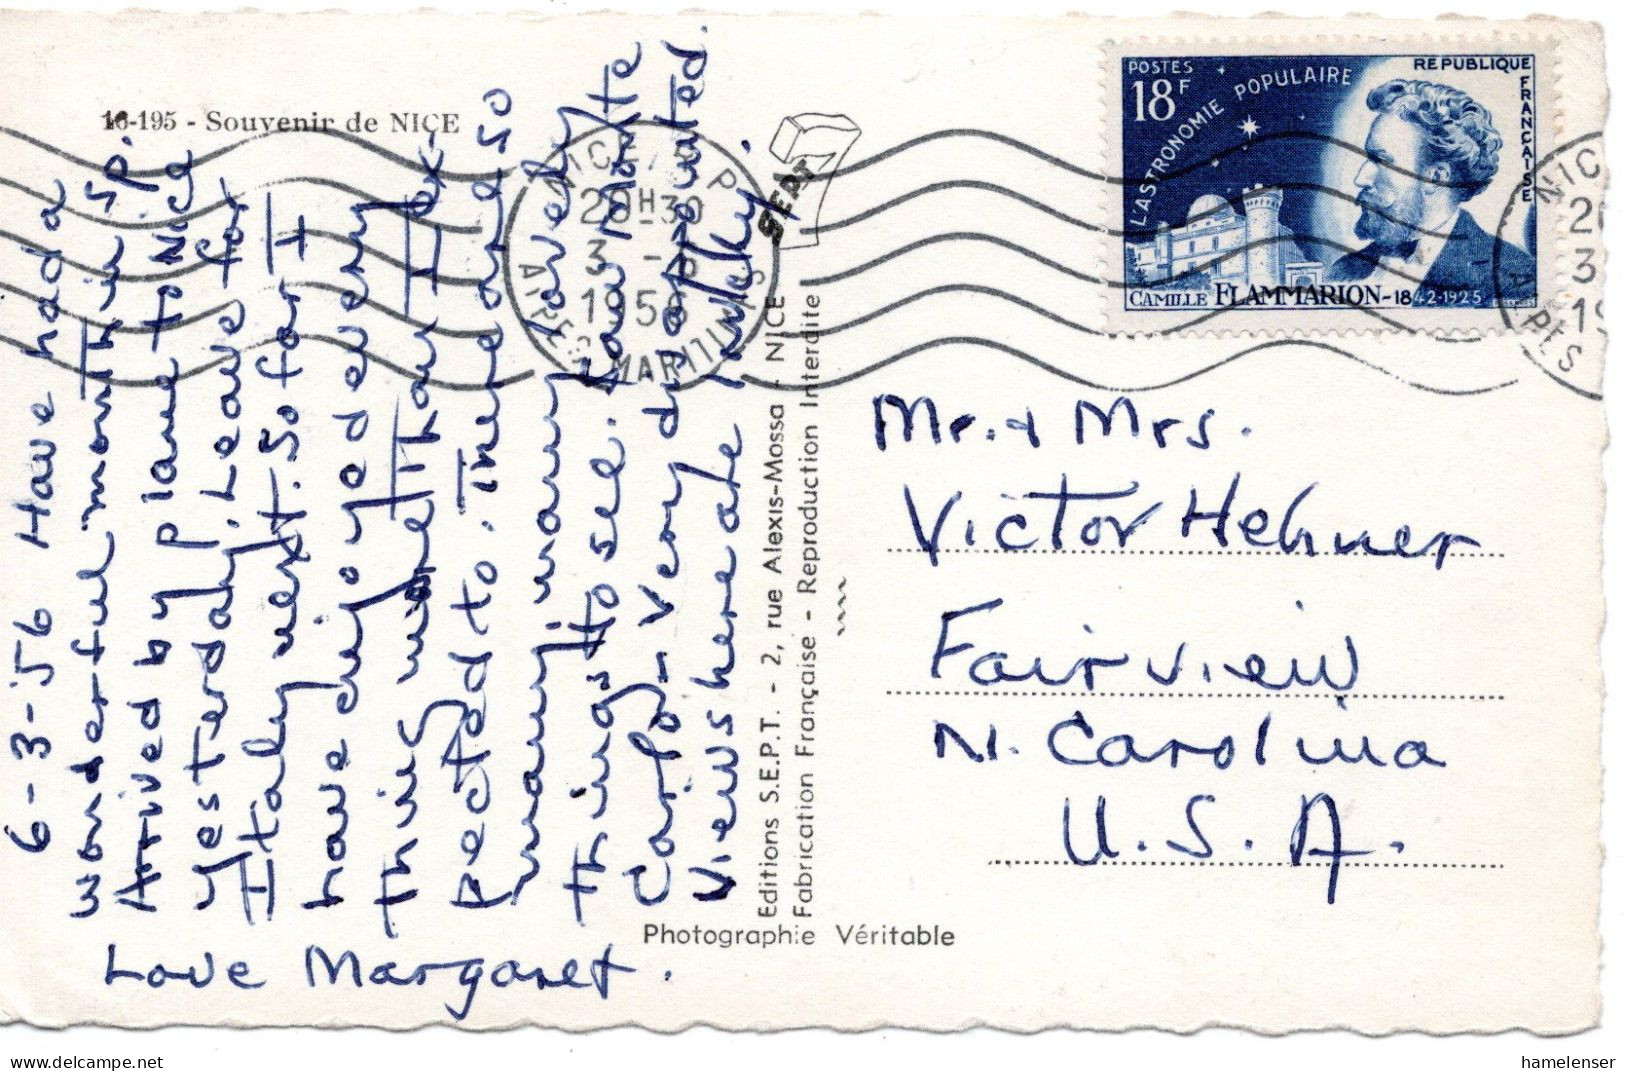 16-195 - Souvenir de NICE
6-3-56 Have had a
wonderful month in Sp.
Arrived by plane to Nice
yesterday. Leave for
Italy next. So far I
have enjoyed every
thing more than I ex-
pected to. There are so
many, many lovely
things to see. Saw Monte
Carlo - very disappointed.
Views here are lovely.
Love Margaret.
SEPT
Editions S.E.P.T. - 2, rue Alexis-Mossa - NICE
Fabrication Française - Reproduction Interdite
Photographie Véritable
NICE R.P.
20H-30
3 - 6
1956
ALPES MARITIMES
POSTES
18F
L'ASTRONOMIE POPULAIRE
REPUBLIQUE FRANÇAISE
CAMILLE FLAMMARION-1842-1925
NIC
3
ALPES
Mr. & Mrs.
Victor Hehner
Fairview
N. Carolina
U.S.A.
hamelenser
delcampe.net